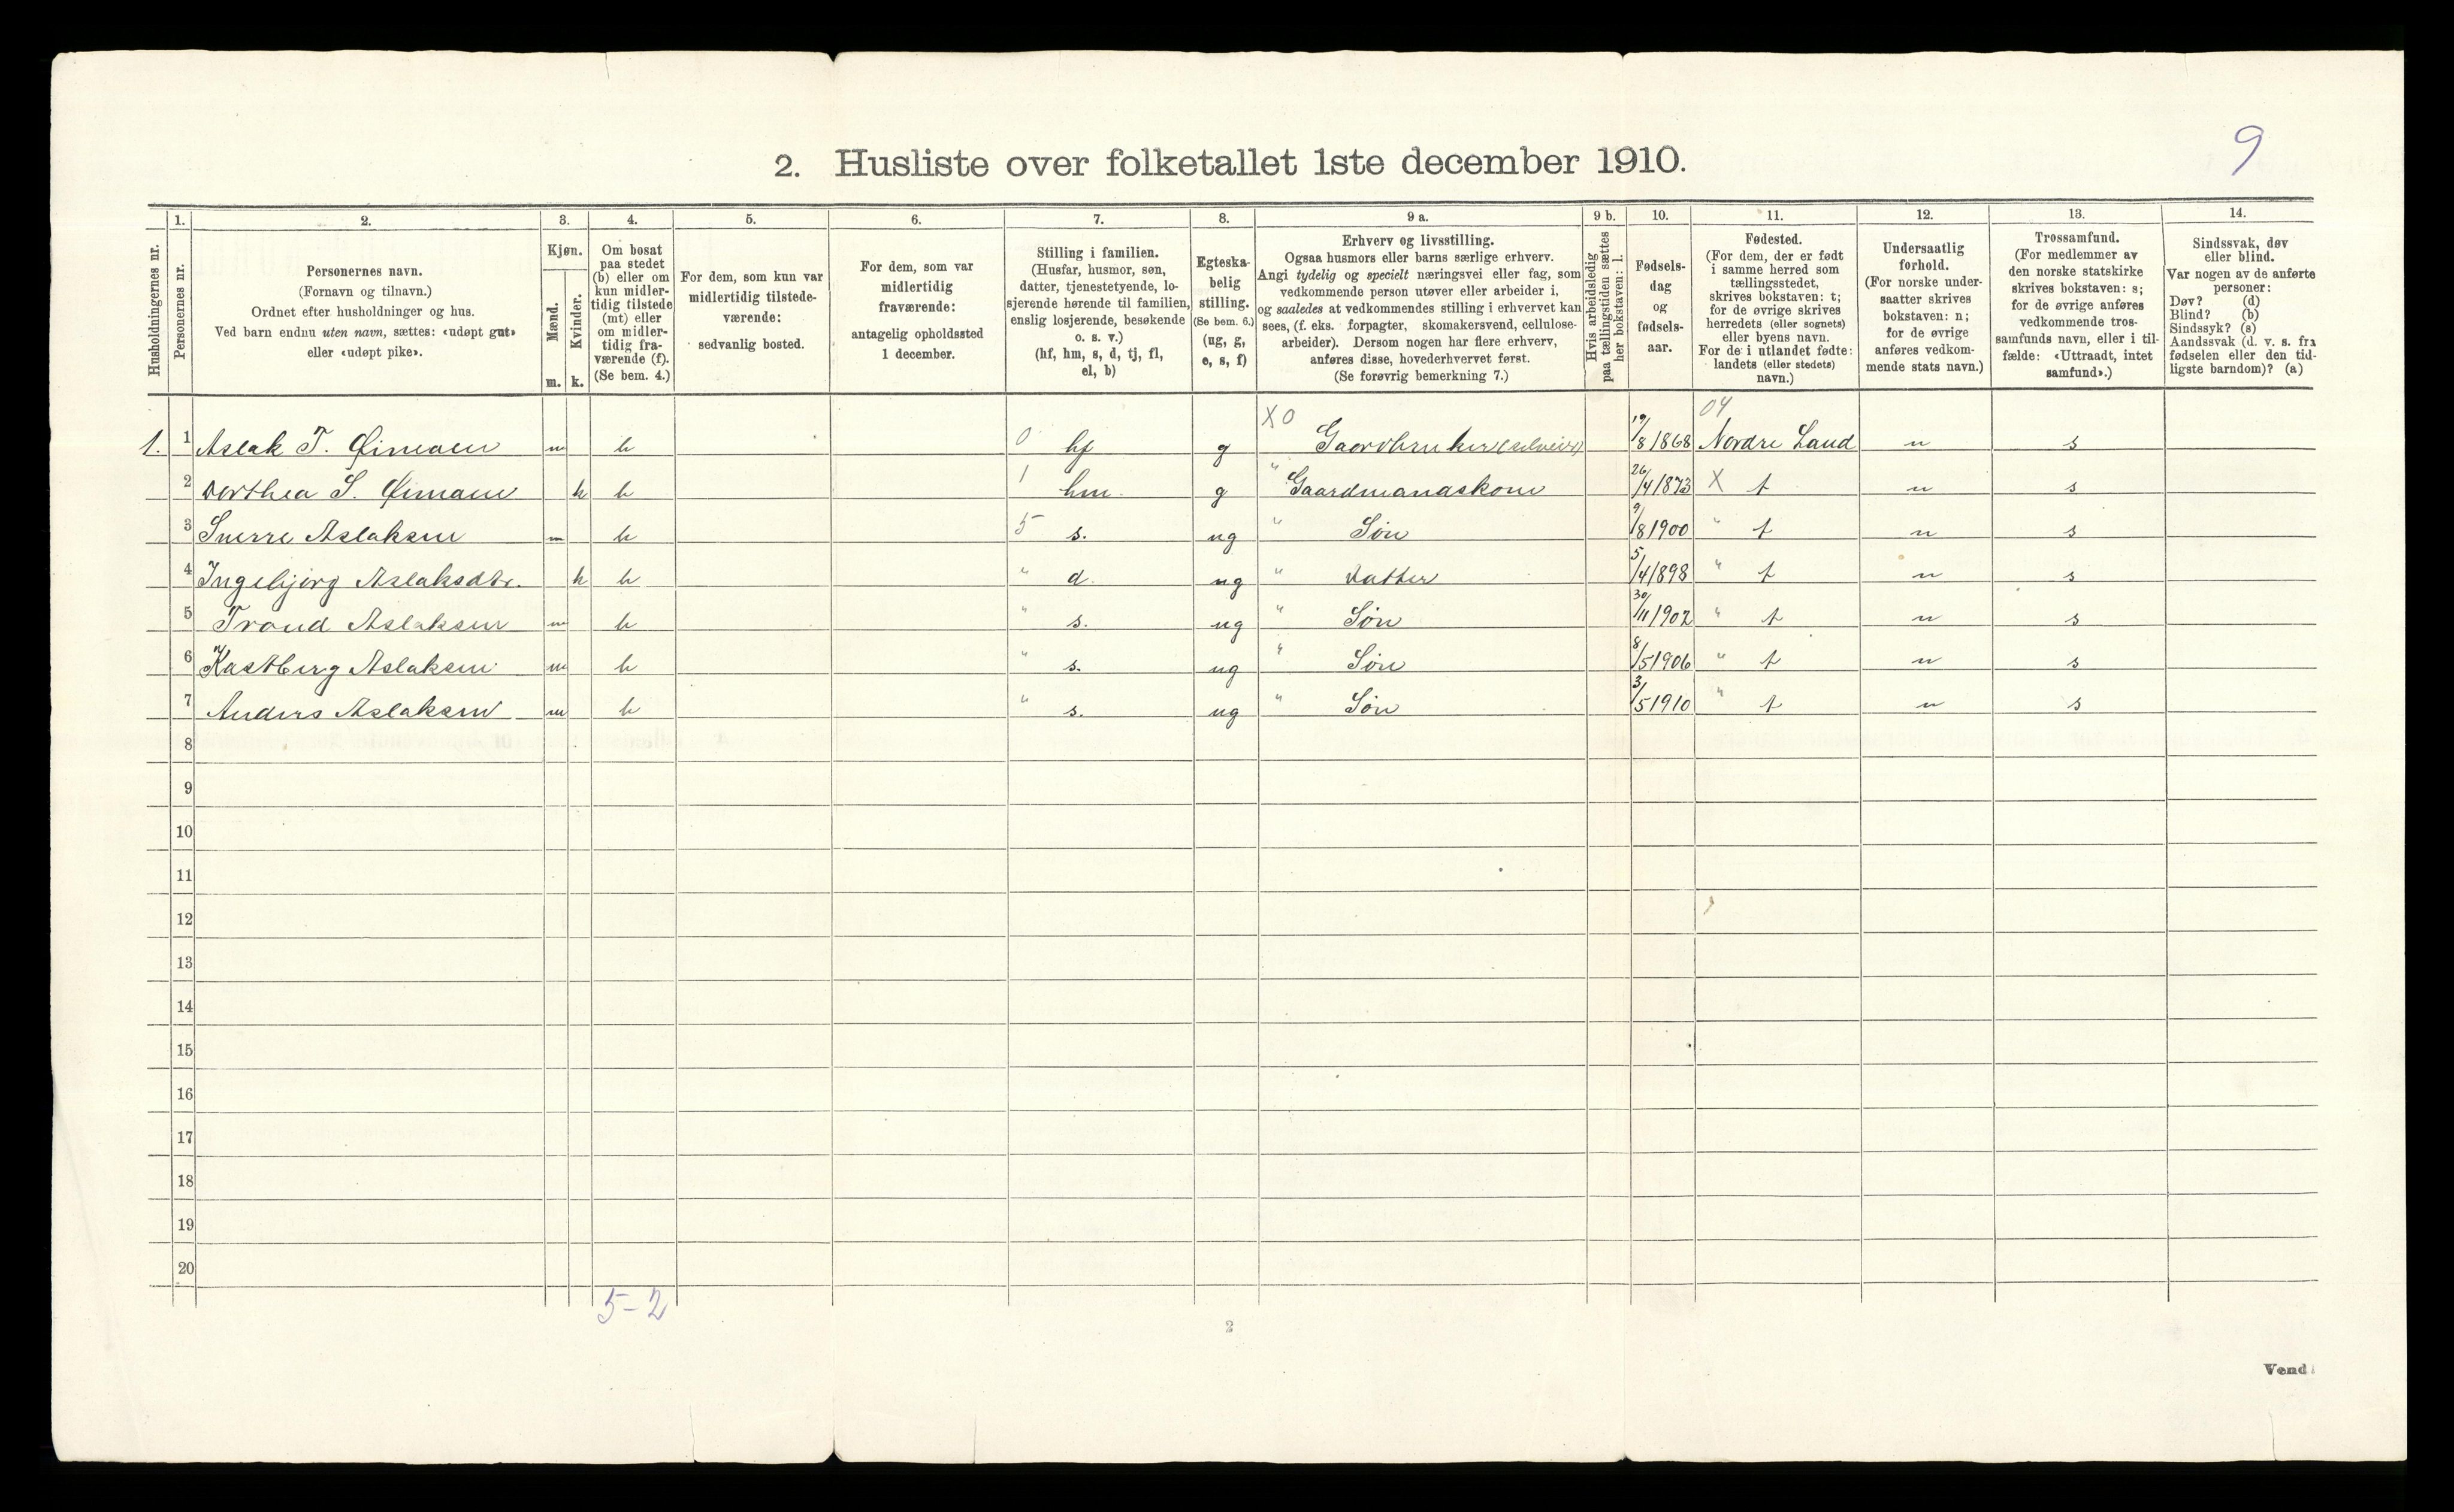 9
2. Husliste over folketallet 1ste december 1910.
Husholdningernes nr.
1. Personernes nr.
2. Personernes navn.
(Fornavn og tilnavn.)
Ordnet efter husholdninger og hus.
Ved barn endnu uten navn, sættes: «udøpt gut»
eller «udøpt pike».
3. Kjøn.
Mænd. Kvinder.
m. k.
4. Om bosat
paa stedet
(b) eller om
kun midler-
tidig tilstede
(mt) eller
om midler-
tidig fra-
værende (f).
(Se bem. 4.)
5. For dem, som kun var
midlertidig tilstede-
værende:
sedvanlig bosted.
6. For dem, som var
midlertidig
fraværende:
antagelig opholdssted
1 december.
7. Stilling i familien.
(Husfar, husmor, søn,
datter, tjenestetyende, lo-
sjerende hørende til familien,
enslig losjerende, besøkende
o. s. v.)
(hf, hm, s, d, tj, fl,
el, b)
8. Egteska-
belig
stilling.
(Se bem. 6.)
(ug, g,
e, s, f)
9 a. Erhverv og livsstilling.
Ogsaa husmors eller barns særlige erhverv.
Angi tydelig og specielt næringsvei eller fag, som
vedkommende person utøver eller arbeider i,
og saaledes at vedkommendes stilling i erhvervet kan
sees, (f. eks. forpagter, skomakersvend, cellulose-
arbeider). Dersom nogen har flere erhverv,
anføres disse, hovederhvervet først.
(Se forøvrig bemerkning 7.)
9 b. Hvis arbeidsledig
paa tællingstiden sættes
her bokstaven: l.
10. Fødsels-
dag
og
fødsels-
aar.
11. Fødested.
(For dem, der er født
i samme herred som
tællingsstedet,
skrives bokstaven: t;
for de øvrige skrives
herredets (eller sognets)
eller byens navn.
For de i utlandet fødte:
landets (eller stedets)
navn.)
12. Undersaatlig
forhold.
(For norske under-
saatter skrives
bokstaven: n;
for de øvrige
anføres vedkom-
mende stats navn.)
13. Trossamfund.
(For medlemmer av
den norske statskirke
skrives bokstaven: s;
for de øvrige anføres
vedkommende tros-
samfunds navn, eller i til-
fælde: «Uttraadt, intet
samfund».)
14. Sindssvak, døv
eller blind.
Var nogen av de anførte
personer:
Døv? (d)
Blind? (b)
Sindssyk? (s)
Aandssvak (d. v. s. fra
fødselen eller den tid-
ligste barndom)? (a)
X0 04
1. 1 Aslak T. Øimoen m b 0 hf g Gaardbruker (selveier) 19/8 1868 Nordre Land n s
2 Dorthea S. Øimoen k b 1 hm. g " Gaardmandskone 26/4 1873 X t n s
3 Sverre Aslaksen m b 5 s. ug " Søn 9/8 1900 " t n s
4 Ingebjørg Aslaksdtr. k b " d. ug " Datter 5/4 1898 " t n s
5 Trond Aslaksen m b " s. ug " Søn 30/11 1902 " t n s
6 Kastberg Aslaksen m b " s. ug " Søn 8/5 1906 " t n s
7 Anders Aslaksen m b " s. ug " Søn 3/5 1910 " t n s
8
9
10
11
12
13
14
15
16
17
18
19
20
5-2
2
Vend